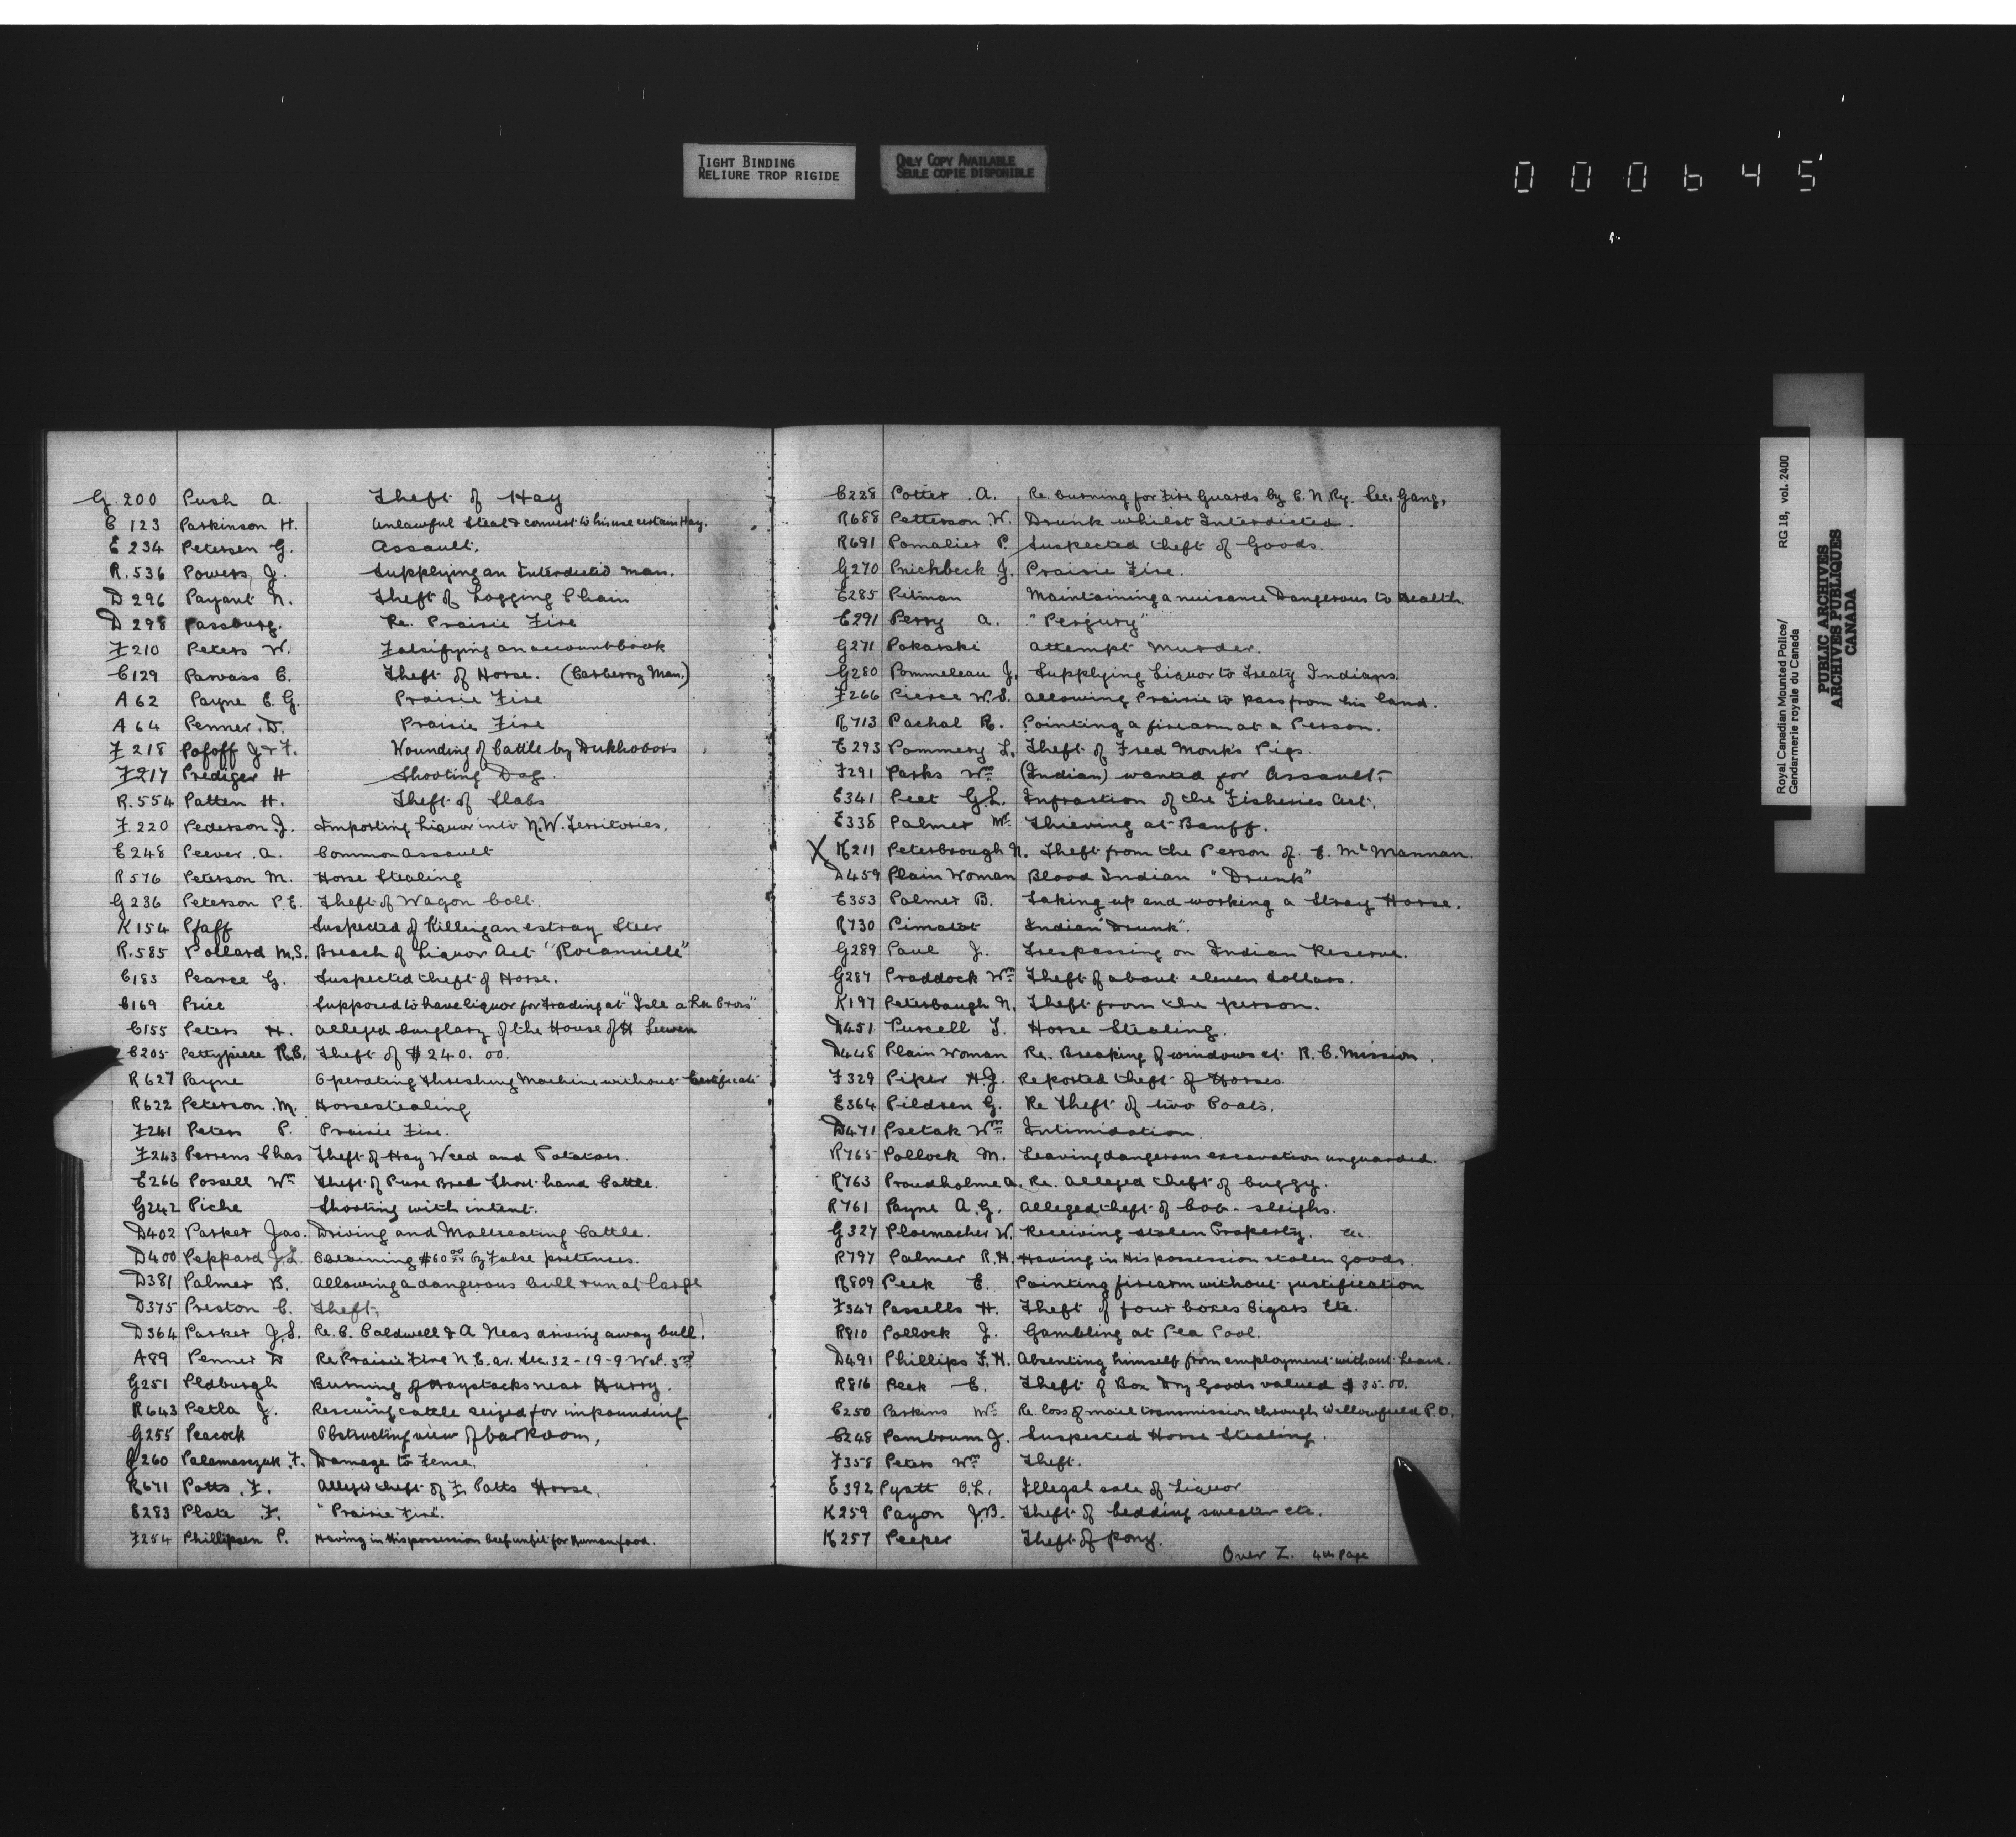 TIGHT BINDING
RELIURE TROP RIGIDE
ONLY COPY AVAILABLE
SEULE COPIE DISPONIBLE
000645
G.200 Push A. Theft of Hay
C 123 Parkinson H. Unlawful Steal & convert to his use certain Hay.
E 234 Petersen G. Assault.
R.536 Powers J. Supplying an Interdicted man.
D 296 Payant N. Theft of Logging Chain
D 298 Passburg. Re. Prairie Fire
F210 Peters W. Falsifying an account book
C129 Parvass C. Theft of Horse. (Carberry Man.)
A 62 Payne E. G. Prairie Fire
A 64 Penner. D. Prairie Fire
F 218 Pofoff J & F. Wounding of Cattle by Dukhobors
F217 Prediger H Shooting Dog.
R.554 Patten H. Theft of Slabs
F.220 Pederson J. Importing Liquor into N.W. Territories.
E248 Peever .A. Common Assault
R576 Peterson M. Horse Stealing
G236 Peterson P.E. Theft of Wagon bolt.
K154 Pfaff Suspected of Killing an estray Steer
R.585 Pollard M.S. Breach of Liquor Act "Rocanville"
C183 Pearce G. Suspected theft of Horse.
C169 Price Supposed to have liquor for trading at "Isle a La Crois"
C155 Peters H. Alleged burglary of the House of H Leewen
C205 Pettypiece R.B. Theft of $240.00.
R627 Payne Operating Threshing Machine without Certificate
R622 Peterson .M. Horsestealing
F241 Peters P. Prairie Fire.
F243 Perrens Chas Theft of Hay Weed and Potatoes.
E266 Possell Wm Theft of Pure Bred Short hand Cattle.
G242 Piche Shooting with intent.
D402 Parker Jas. Driving and Maltreating Cattle.
D400 Peppard J.L. Obtaining $60 00 by False pretences.
D381 Palmer B. Allowing a dangerous bull run at large
D375 Preston C. Theft.
D364 Parker J.S. Re. C. Caldwell & A Neas driving away bull.
A89 Penner D Re Prairie Fire N.E. qr. Sec. 32-19-9-W of. 3rd
G251 Pldburgh Burning of Haystacks near Hurry.
R643 Petla J. Rescuing cattle seized for impounding
G255 Peacock Obstructing view of bar Room,
G260 Palamasczuk .F. Damage to Fence.
R671 Potts .F. Alleged theft of F. Potts Horse.
E283 Plate .F. "Prairie Fire".
F254 Phillipsen P. Having in His possession beef unfit for Human food.
C228 Potter .A. Re. burning for Fire Guards by C. N Ry. Sec. Gang.
R688 Petterson W. Drunk whilst Interdicted.
R691 Pomalier P. Suspected theft of Goods.
G270 Prichbeck J. Prairie Fire.
E285 Pitman Maintaining a nuisance Dangerous to Health.
E291 Perry A. "Perjury"
G271 Pokarski Attempt Murder.
G280 Pommeleau J. Supplying Liquor to Treaty Indians.
F266 Pierce W.S. Allowing Prairie to pass from his land.
R713 Pachal R. Pointing a firearm at a Person.
E293 Pommery L. Theft of Fred Monk's Pigs.
F291 Parks Wm (Indian) wanted for Assault.
E341 Peet G.L. Infraction of the Fisheries Act.
E338 Palmer Mr. Thieving at Banff.
X K211 Peterbrough N. Theft from the Person of E. McMannan.
D459 Plain Woman Blood Indian "Drunk"
E353 Palmer B. Taking up and working a Stray Horse.
R730 Pimatat Indian "Drunk".
G289 Paul J. Trespassing on Indian Reserve.
G287 Praddock Wm Theft of about eleven dollars.
K197 Peterbaugh N. Theft from the person.
D451 Purcell T. Horse Stealing.
D448 Plain Woman Re. Breaking of windows at R. C. Mission.
F329 Piper H.J. Reported theft of Horses.
E364 Pildren G. Re Theft of two Coats.
D471 Psetak Wm Intimidation
R765 Pollock M. Leaving dangerous excavation unguarded.
R763 Proudholme A. Re. Alleged theft of buggy.
R761 Payne A.G. Alleged theft of bob-sleighs.
G327 Ploemacher W. Receiving stolen Property. etc.
R797 Palmer R.H. Having in His possession stolen goods.
R809 Peek E. Pointing firearm without justification
F347 Passells H. Theft of four boxes Cigars etc.
R810 Pollock J. Gambling at Pea Pool.
D491 Phillips F.H. Absenting himself from employment without Leave.
R816 Peek E. Theft of Box Dry Goods valued $35.00.
C250 Parkins Mr. Re loss of mail transmission through Willowfield P.O.
C248 Pambrum J. Suspected Horse Stealing.
F358 Peters Wm Theft.
E392 Pyatt O.L. Illegal sale of Liquor
K259 Payon J.B. Theft of bedding sweater etc.
K257 Peeper Theft of pony.
Over Z. 4th Page
Royal Canadian Mounted Police/ RG 18, vol. 2400
Gendarmerie royale du Canada
PUBLIC ARCHIVES
ARCHIVES PUBLIQUES
CANADA